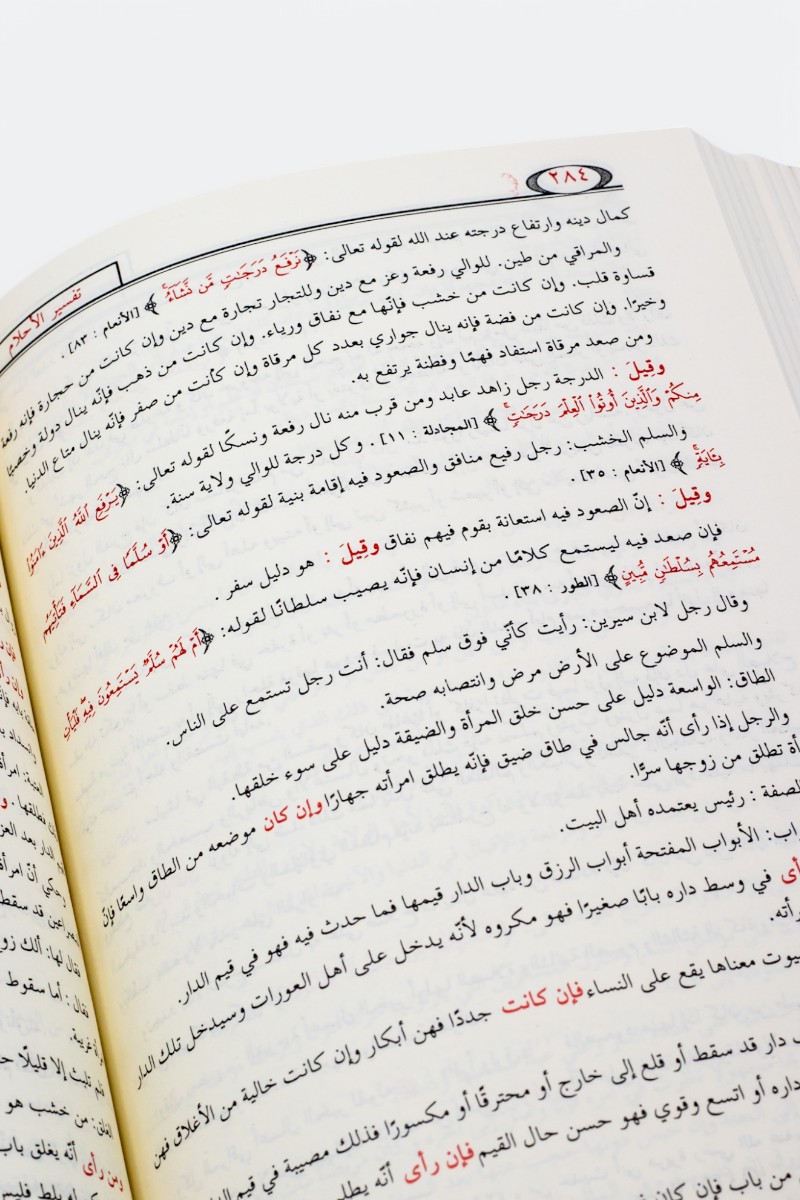 ٢٨٤
تفسير الأحلام
كمال دينه وارتفاع درجته عند الله لقوله تعالى: ﴿نَرْفَعُ دَرَجَٰتٍ مَّن نَّشَآءُ﴾ [الأنعام : ٨٣] .
والمراقي من طين. للوالي رفعة وعز مع دين وللتجار تجارة مع دين وإن كانت من حجارة فإنه رفعة
قساوة قلب. وإن كانت من خشب فإنّها مع نفاق ورياء. وإن كانت من ذهب فإنّه ينال دولة وخصبًا
وخيرًا. وإن كانت من فضة فإنه ينال جواري بعدد كل مرقاة وإن كانت من صفر فإنّه ينال متاع الدنيا.
ومن صعد مرقاة استفاد فهمًا وفطنة يرتفع به.
وقِيلَ : الدرجة رجل زاهد عابد ومن قرب منه نال رفعة ونسكًا لقوله تعالى: ﴿يَرْفَعِ ٱللَّهُ ٱلَّذِينَ ءَامَنُوا۟
مِنكُمْ وَٱلَّذِينَ أُوتُوا۟ ٱلْعِلْمَ دَرَجَٰتٍ﴾ [المجادلة : ١١] . وكل درجة للوالي ولاية سنة.
والسلم الخشب: رجل رفيع منافق والصعود فيه إقامة بنية لقوله تعالى: ﴿أَوْ سُلَّمًا فِى ٱلسَّمَآءِ فَتَأْتِيَهُم
بِـَٔايَةٍ﴾ [الأنعام : ٣٥] .
وقِيلَ : إنّ الصعود فيه استعانة بقوم فيهم نفاق وقِيلَ : هو دليل سفر .
فإن صعد فيه ليستمع كلامًا من إنسان فإنّه يصيب سلطانًا لقوله: ﴿أَمْ لَهُمْ سُلَّمٌ يَسْتَمِعُونَ فِيهِ فَلْيَأْتِ
مُسْتَمِعُهُم بِسُلْطَٰنٍ مُّبِينٍ﴾ [الطور : ٣٨] .
وقال رجل لابن سيرين: رأيت كأنّي فوق سلم فقال: أنت رجل تستمع على الناس.
والسلم الموضوع على الأرض مرض وانتصابه صحة.
الطاق: الواسعة دليل على حسن خلق المرأة والضيقة دليل على سوء خلقها.
والرجل إذا رأى أنّه جالس في طاق ضيق فإنّه يطلق امرأته جهارًا وإن كان موضعه من الطاق واسعًا فإنّ
تطلق من زوجها سرًا.
الصفة : رئيس يعتمده أهل البيت.
الأبواب المفتحة أبواب الرزق وباب الدار قيمها فما حدث فيه فهو في قيم الدار.
في وسط داره بابًا صغيرًا فهو مكروه لأنّه يدخل على أهل العورات وسيدخل تلك الدار
معناها يقع على النساء فإن كانت جددًا فهن أبكار وإن كانت خالية من الأغلاق فهن
دار قد سقط أو قلع إلى خارج أو محترقًا أو مكسورًا فذلك مصيبة في قيم
داره أو اتسع وقوي فهو حسن حال القيم فإن رأى أنّه
من باب فإن كان